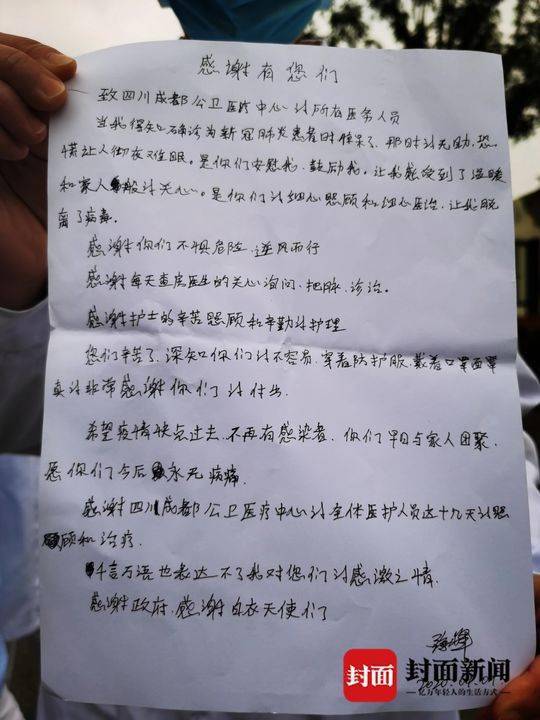 感谢有您们
致四川成都公卫医疗中心的所有医务人员
当我得知确诊为新冠肺炎患者时惊呆了，那时的无助，恐
慌让人彻夜难眠。是你们安慰我，鼓励我。让我感受到了温暖
和家人般的关心。是你们的细心照顾和细心医治，让我脱
离了病毒。
感谢你们不惧危险，逆风而行
感谢每天查房医生的关心询问、把脉、诊治。
感谢护士的辛苦照顾和辛勤的护理
您们辛苦了，深知你们的不容易，穿着防护服，戴着口罩面罩
真的非常感谢你们的付出。
希望疫情快点过去，不再有感染者，你们早日与家人团聚，
愿你们今后永无病痛。
感谢四川成都公卫医疗中心的全体医护人员这十九天的照
顾和治疗。
千言万语也表达不了我对您们的感激之情。
感谢政府，感谢白衣天使们
封面
封面新闻
亿万年轻人的生活方式